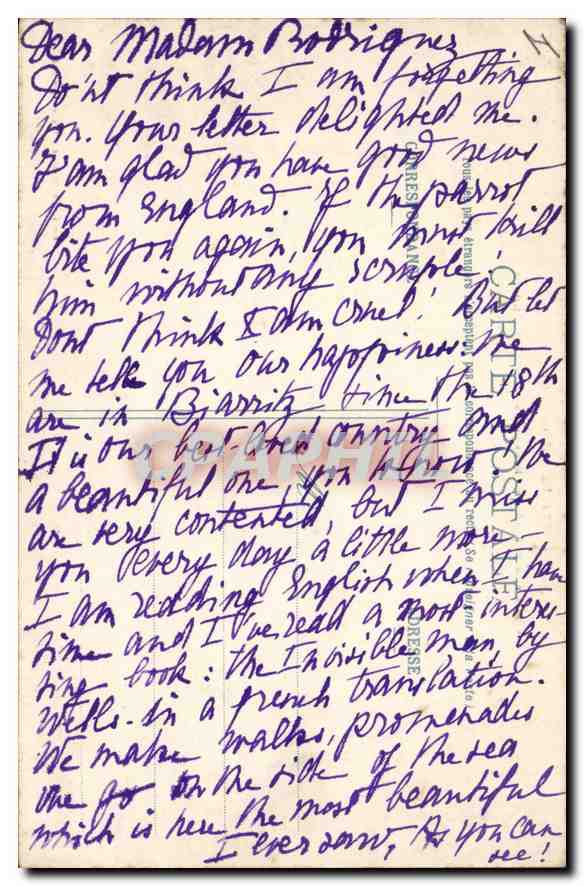 Dear Madam Rodriguez
Do'nt think I am forgetting
you. Your letter delighted me.
I am glad you have good news
from England. If the parrot
bite you again, you must kill
him without any scruple!
Dont think I am cruel! But let
me tell you our happiness. We
are in Biarritz since the 18th
It is our best loved country and
a beautiful one you know. We
are very contented, but I miss
you every day a little more -
I am reading English when I have
time and I've read a most interes-
ting book: the Invisible man, by
Wells. in a french translation.
We make walks, promenades
we go on the side of the sea
which is here the most beautiful
I ever saw, As you can
see!
CARTE POSTALE
CORRESPONDANCE
ADRESSE
CPAPHIL